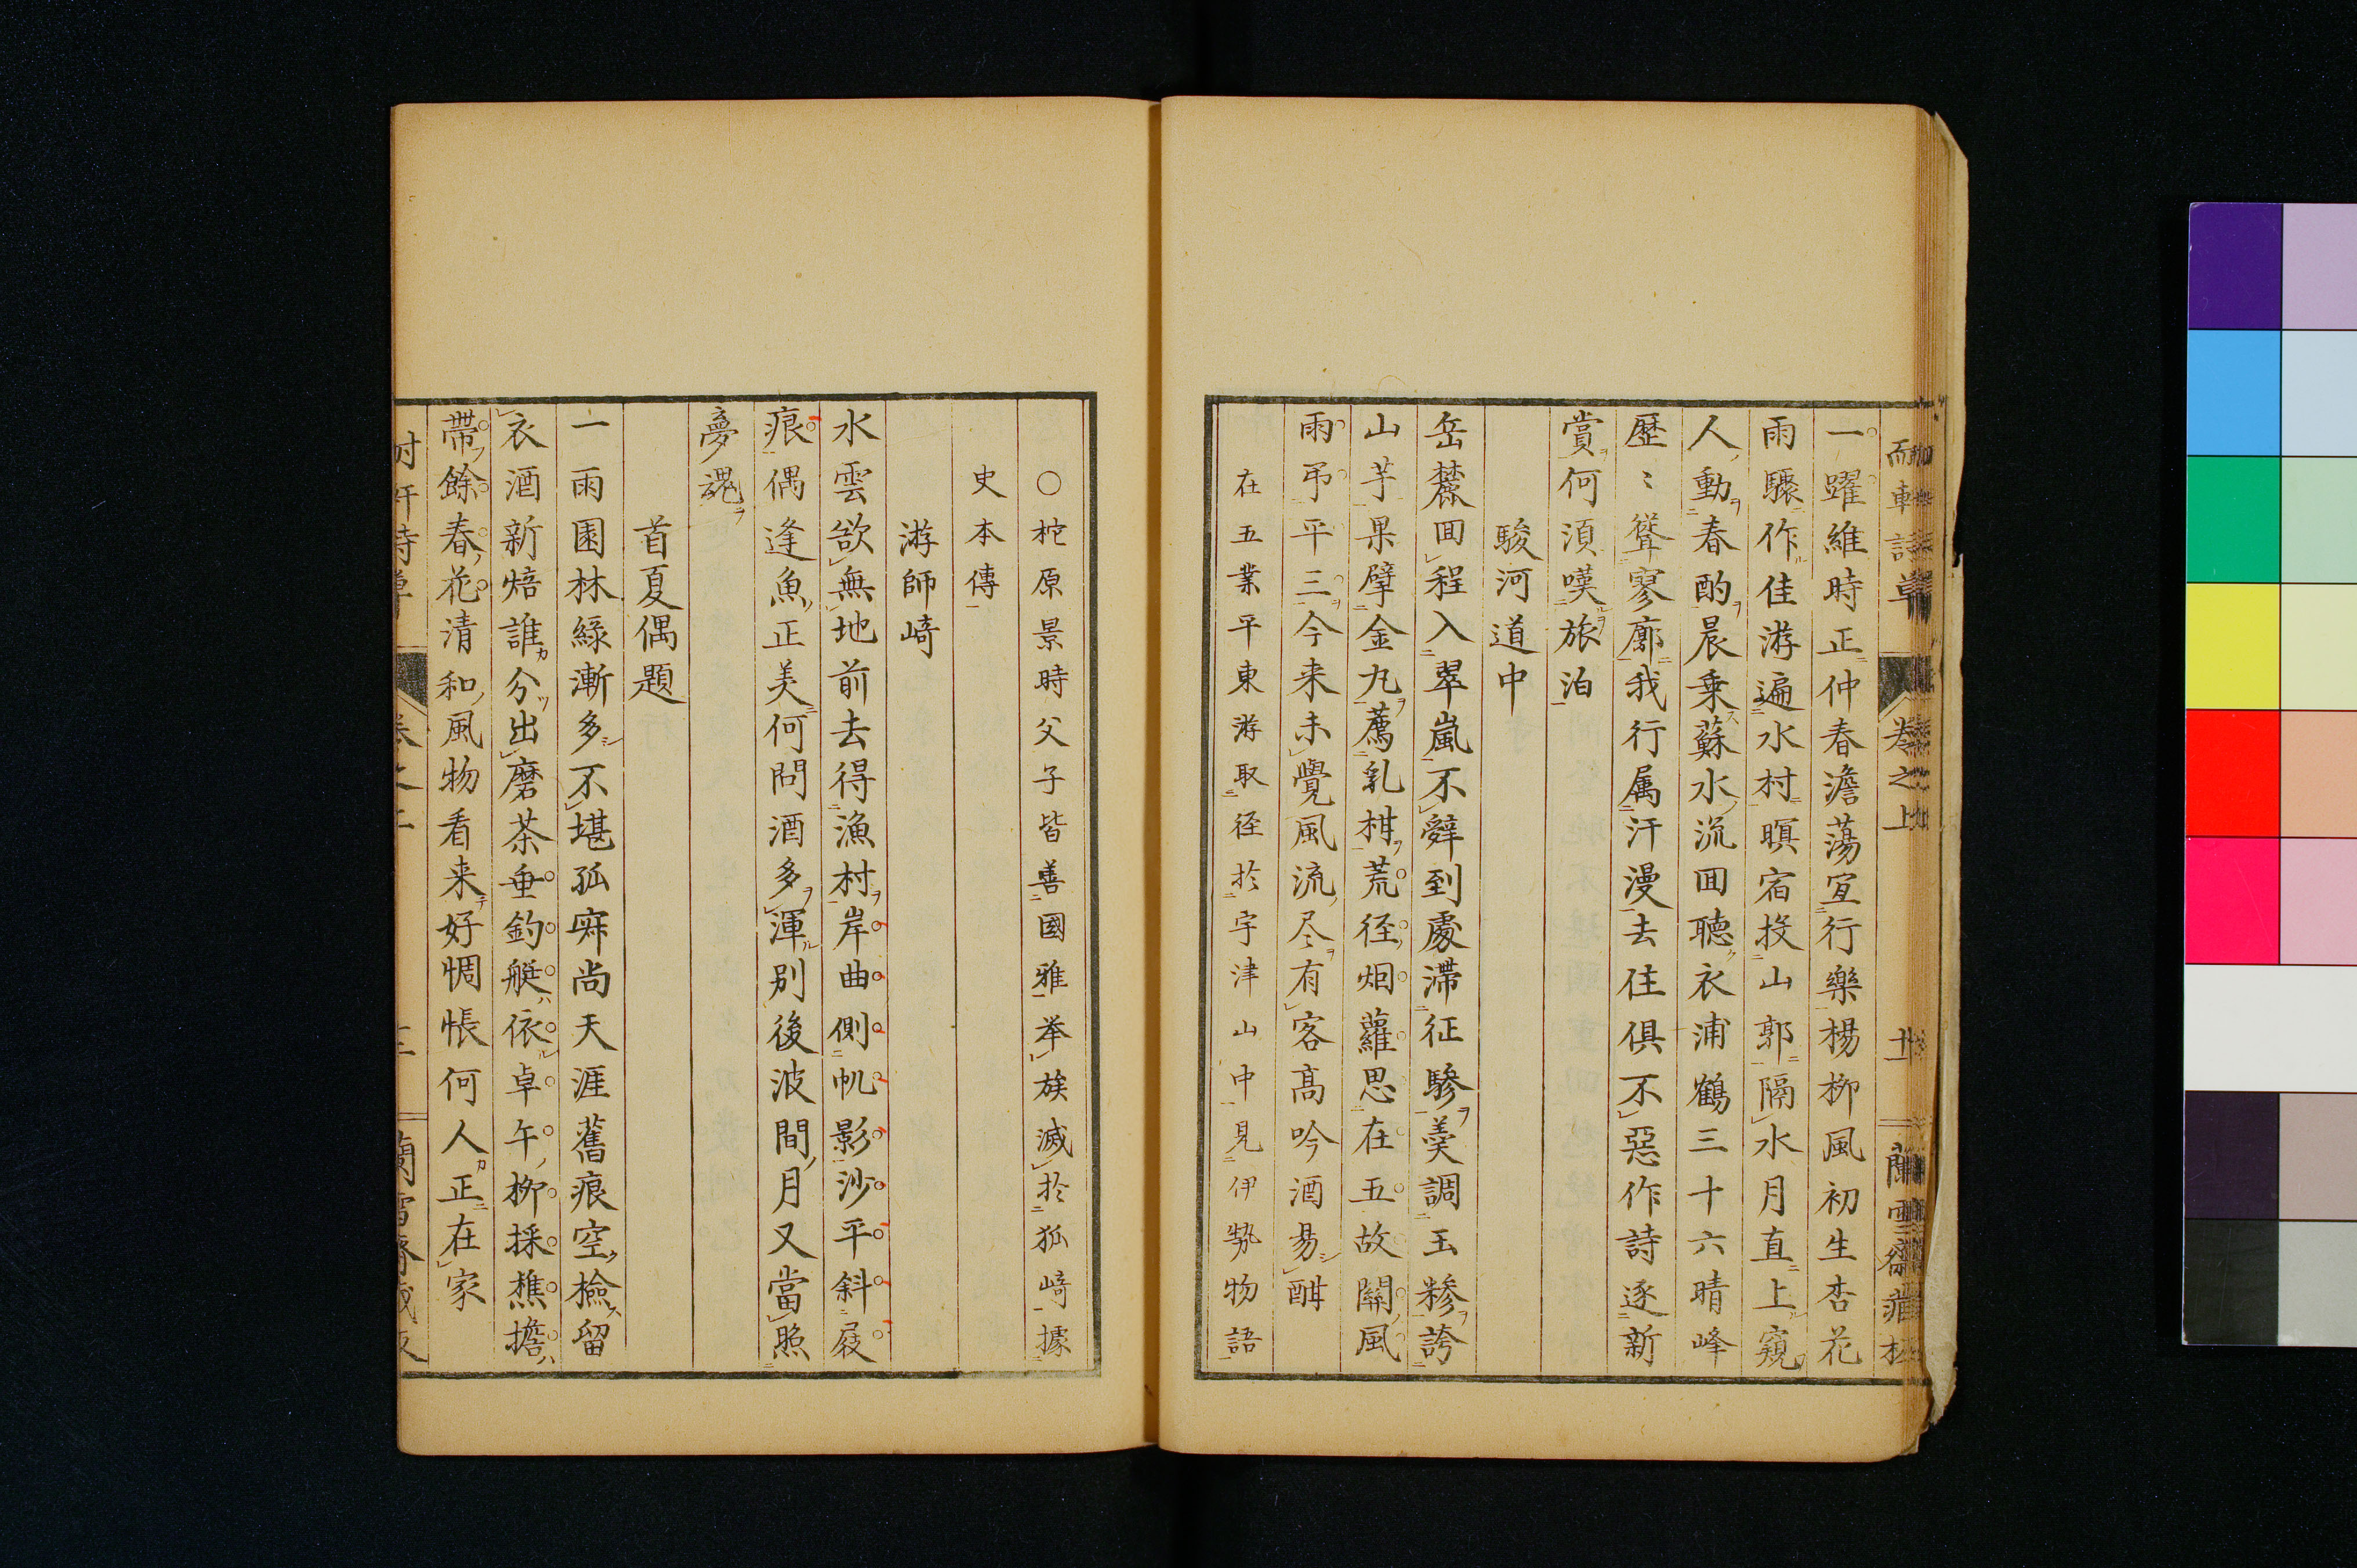 一躍維時正仲春澹蕩宜行樂楊柳風初生杏花
雨驟作佳游遍水村暝宿投山郭隔水月直上窺
人動春酌晨乗蘇水流回聴衣浦鶴三十六晴峰
歴〻聳寥廓我行属汗漫去住倶不惡作詩逐新
賞何須嘆旅泊
駿河道中
岳麓回程入翠嵐不辤到處滞征驂羮調玉糝誇
山芋果擘金丸薦乳柑荒径烟蘿思在五故關風
雨弔平三今来未覺風流尽有客髙吟酒易酣
在五業平東游取径於宇津山中見伊勢物語
○梶原景時父子皆善國雅举族滅於狐﨑據
史本傳
游師﨑
水雲欲無地前去得漁村岸曲側帆影沙平斜屐
痕偶逢魚正美何問酒多渾別後波間月又當照
夢魂
首夏偶題
一雨園林緑漸多不堪孤寂尚天涯舊痕空檢留
衣酒新焙誰分出磨茶垂釣艇依卓午栁採樵擔
帶餘春花清和風物看来好惆悵何人正在家